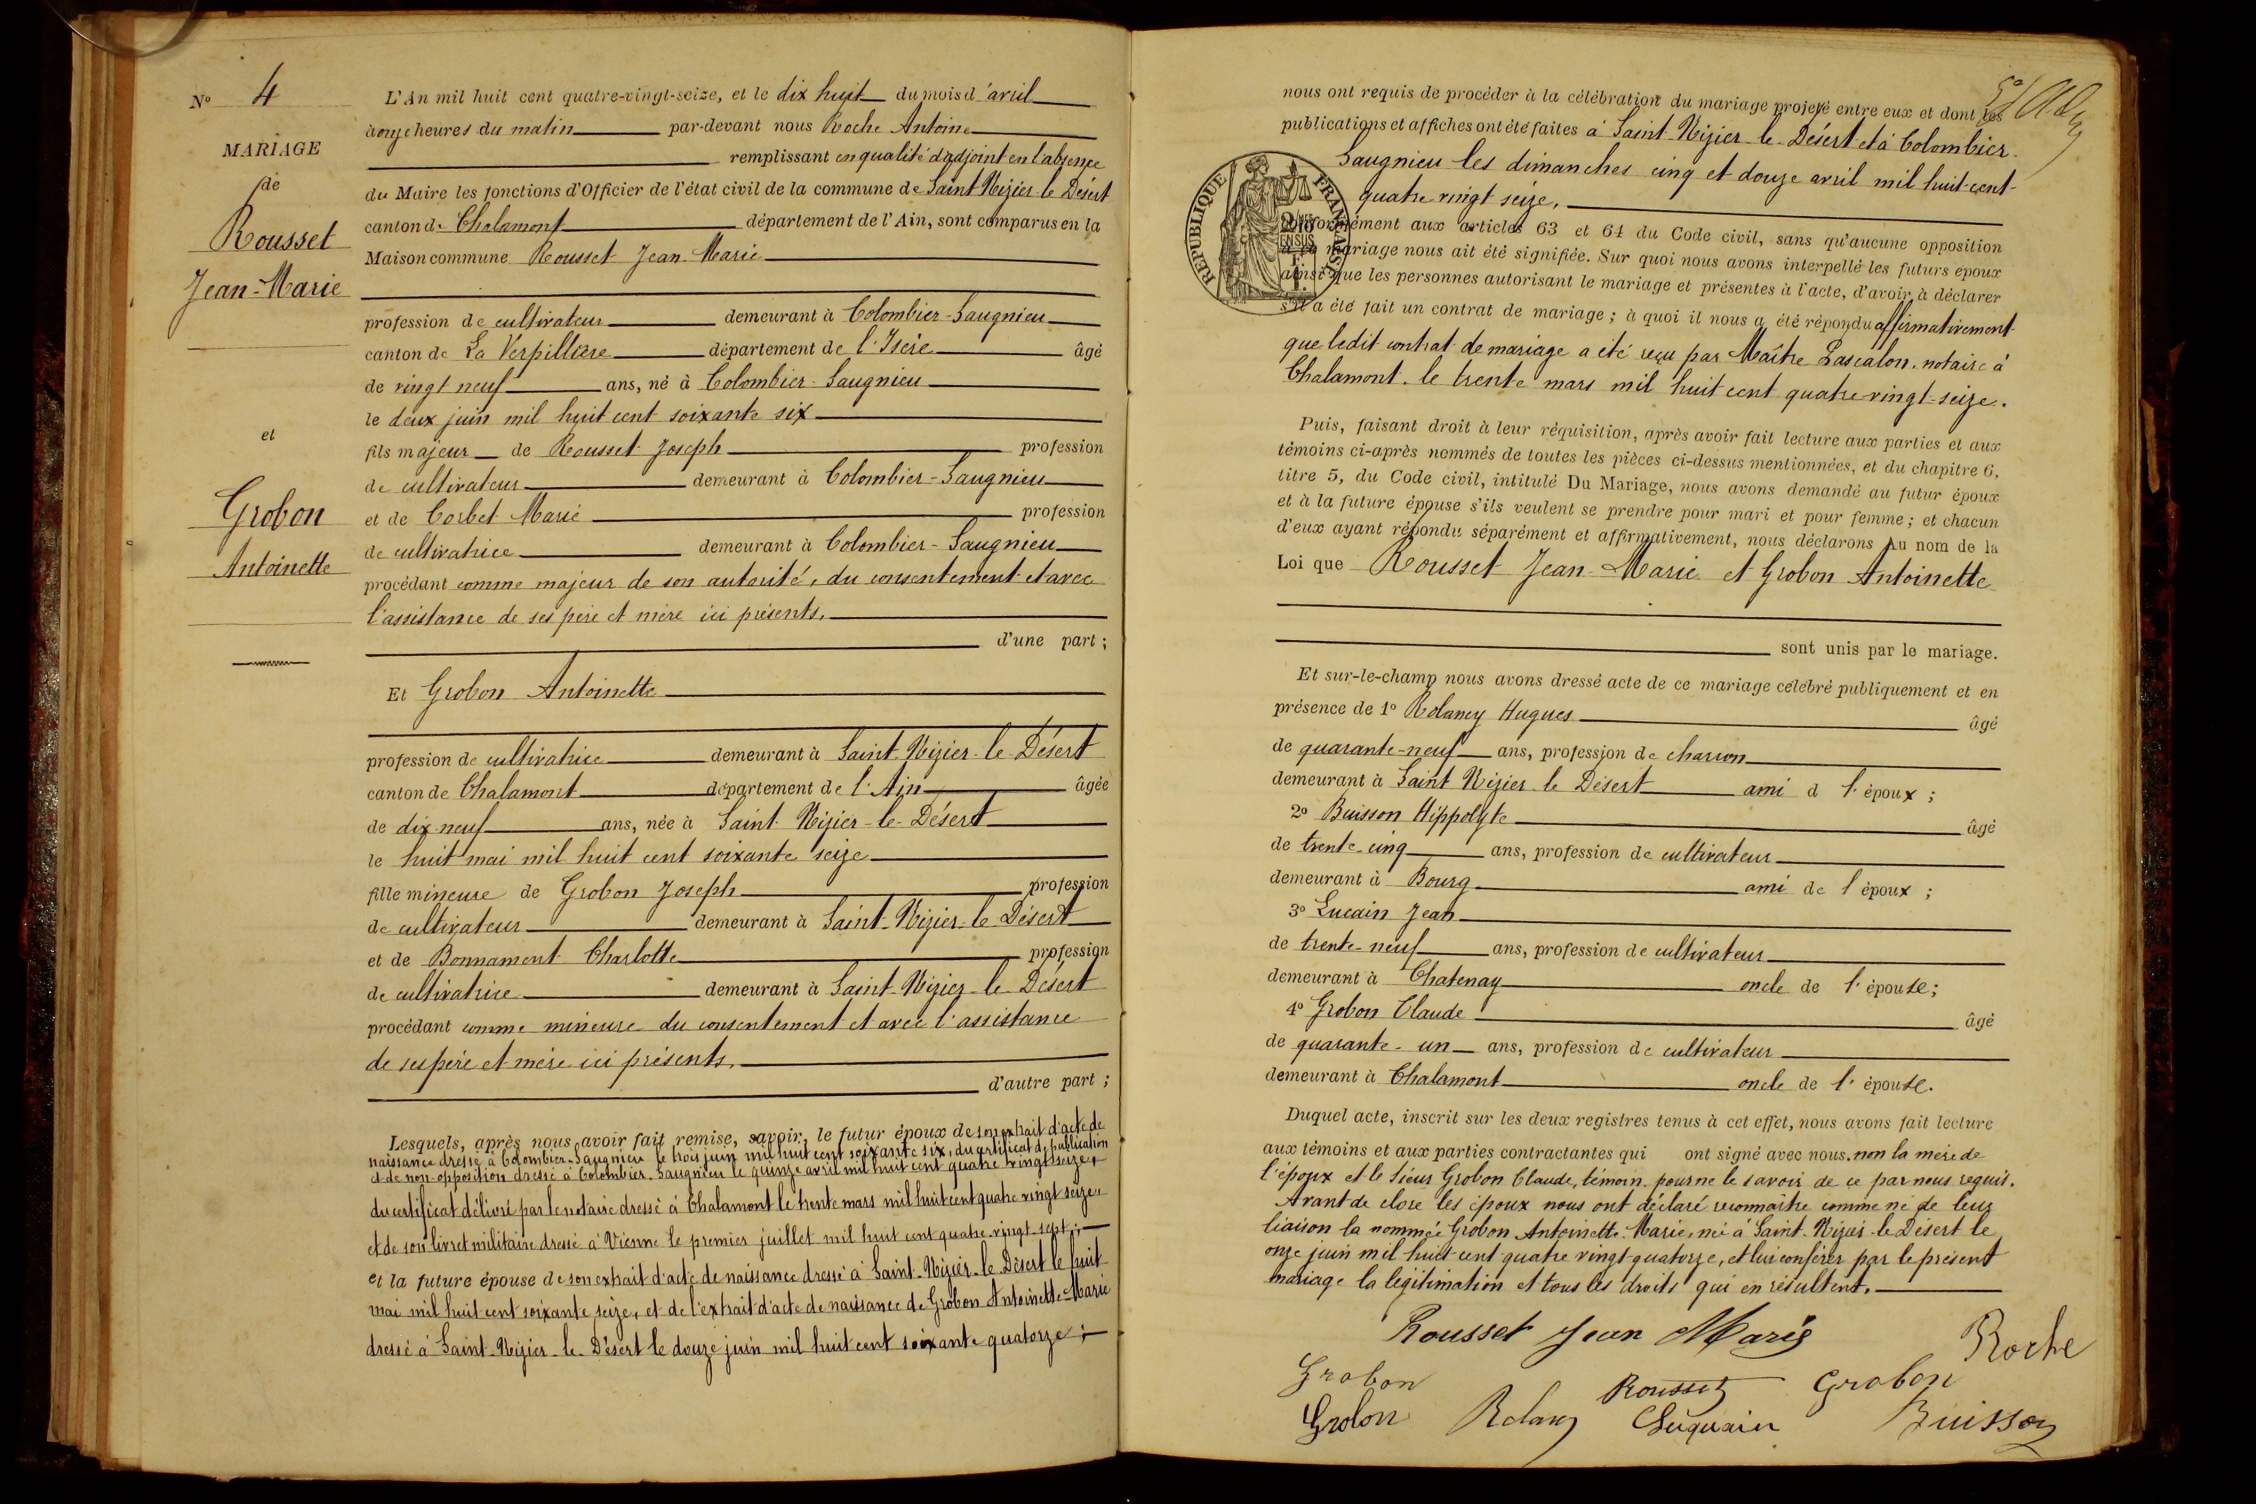 N° 4
MARIAGE
de
Rousset
Jean-Marie
et
Grobon
Antoinette
L'An mil huit cent quatre-vingt-seize, et le dix huit du mois d'avril
à onze heures du matin par-devant nous Roche Antoine
remplissant en qualité d'adjoint en l'absence
du Maire les fonctions d'Officier de l'état civil de la commune de Saint Nizier le Désert
canton de Chalamont département de l'Ain, sont comparus en la
Maison commune Rousset Jean-Marie
profession de cultivateur demeurant à Colombier-Saugnieu
canton de La Verpillière département de l'Isère âgé
de vingt neuf ans, né à Colombier-Saugnieu
le deux juin mil huit cent soixante six
fils majeur de Rousset Joseph profession
de cultivateur demeurant à Colombier-Saugnieu
et de Corbet Marie profession
de cultivatrice demeurant à Colombier-Saugnieu
procédant comme majeur de son autorité, du consentement et avec
l'assistance de ses père et mère ici présents,
d'une part ;
Et Grobon Antoinette
profession de cultivatrice demeurant à Saint Nizier-le-Désert
canton de Chalamont département de l'Ain âgée
de dix-neuf ans, née à Saint Nizier-le-Désert
le huit mai mil huit cent soixante seize
fille mineure de Grobon Joseph profession
de cultivateur demeurant à Saint-Nizier-le-Désert
et de Bonnament Charlotte profession
de cultivatrice demeurant à Saint-Nizier-le-Désert
procédant comme mineure du consentement et avec l'assistance
de ses père et mère ici présents,
d'autre part ;
Lesquels, après nous avoir fait remise, savoir, le futur époux de son extrait d'acte de
naissance dressé à Colombier-Saugnieu le trois juin mil huit cent soixante six, du certificat de publication
et de non-opposition dressé à Colombier-Saugnieu le quinze avril mil huit cent quatre vingt seize,
du certificat délivré par le notaire dressé à Chalamont le trente mars mil huit cent quatre vingt seize,
et de son livret militaire dressé à Vienne le premier juillet mil huit cent quatre-vingt-sept ;
et la future épouse de son extrait d'acte de naissance dressé à Saint-Nizier-le-Désert le huit
mai mil huit cent soixante seize, et de l'extrait d'acte de naissance de Grobon Antoinette-Marie
dressé à Saint-Nizier-le-Désert le douze juin mil huit cent soixante quatorze ;
nous ont requis de procéder à la célébration du mariage projeté entre eux et dont les
publications et affiches ont été faites à Saint-Nizier-le-Désert et à Colombier-
Saugnieu les dimanches cinq et douze avril mil huit-cent-
quatre vingt seize,
RÉPUBLIQUE FRANÇAISE
conformément aux articles 63 et 64 du Code civil, sans qu'aucune opposition
à ce mariage nous ait été signifiée. Sur quoi nous avons interpellé les futurs époux
ainsi que les personnes autorisant le mariage et présentes à l'acte, d'avoir à déclarer
s'il a été fait un contrat de mariage ; à quoi il nous a été répondu affirmativement
que ledit contrat de mariage a été reçu par Maître Lascalon, notaire à
Chalamont, le trente mars mil huit cent quatre vingt-seize.
Puis, faisant droit à leur réquisition, après avoir fait lecture aux parties et aux
témoins ci-après nommés de toutes les pièces ci-dessus mentionnées, et du chapitre 6,
titre 5, du Code civil, intitulé Du Mariage, nous avons demandé au futur époux
et à la future épouse s'ils veulent se prendre pour mari et pour femme ; et chacun
d'eux ayant répondu séparément et affirmativement, nous déclarons Au nom de la
Loi que Rousset Jean-Marie et Grobon Antoinette
sont unis par le mariage.
Et sur-le-champ nous avons dressé acte de ce mariage célébré publiquement et en
présence de 1° Rolancy Hugues âgé
de quarante-neuf ans, profession de charron
demeurant à Saint Nizier le Désert ami d l'époux ;
2° Buisson Hippolyte âgé
de trente-cinq ans, profession de cultivateur
demeurant à Bourg ami de l'époux ;
3° Lucain Jean
de trente-neuf ans, profession de cultivateur
demeurant à Chatenay oncle de l'épouse ;
4° Grobon Claude âgé
de quarante-un ans, profession de cultivateur
demeurant à Chalamont oncle de l'épouse.
Duquel acte, inscrit sur les deux registres tenus à cet effet, nous avons fait lecture
aux témoins et aux parties contractantes qui ont signé avec nous, non la mère de
l'époux et le sieur Grobon Claude, témoin, pour ne le savoir de ce par nous requis.
Avant de clore les époux nous ont déclaré reconnaître comme né de leur
liaison la nommée Grobon Antoinette-Marie, née à Saint-Nizier-le-Désert le
onze juin mil huit cent quatre vingt quatorze, et lui conférer par le présent
mariage la légitimation et tous les droits qui en résultent.
Rousset Jean Marie
Roche
Grobon
Rousset
Grobon
Grobon
Rolancy
Luquain
Buisson